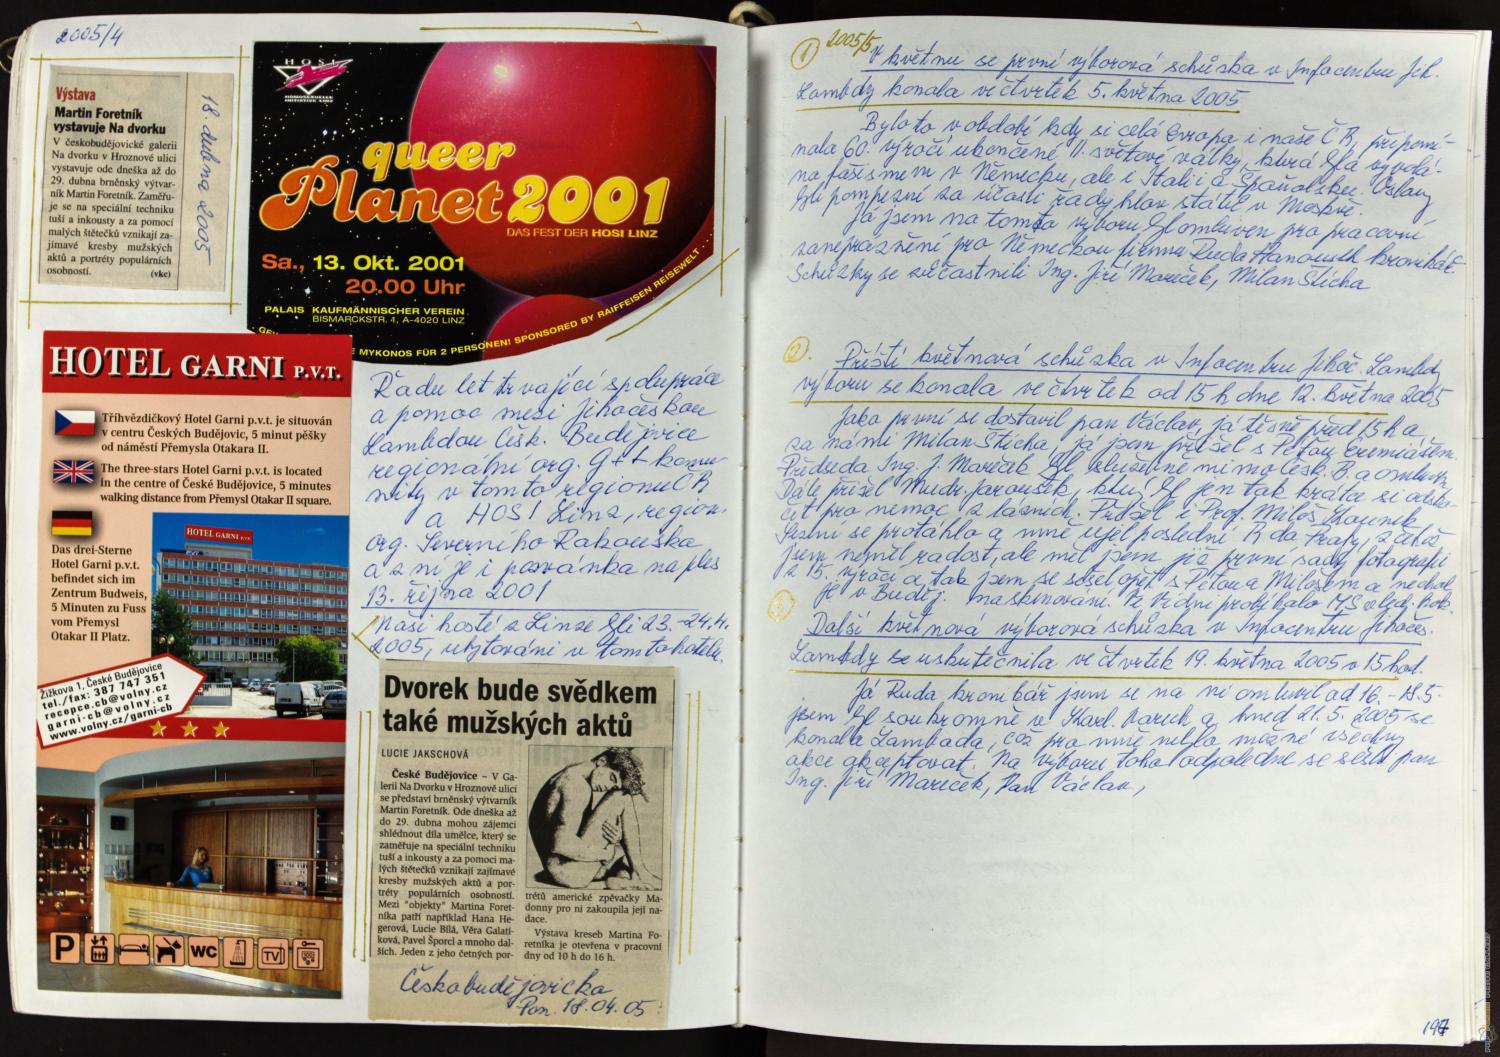 2005/4
Výstava
Martin Foretník
vystavuje Na dvorku
V českobudějovické galerii
Na dvorku v Hroznové ulici
vystavuje ode dneška až do
29. dubna brněnský výtvar-
ník Martin Foretník. Zaměřu-
je se na speciální techniku
tuší a inkousty a za pomocí
malých štětečků vznikají za-
jímavé kresby mužských
aktů a portréty populárních
osobností. (vkc)
18. dubna 2005
HOSI
HOMOSEXUELLE
INITIATIVE LINZ
queer
Planet 2001
DAS FEST DER HOSI LINZ
Sa., 13. Okt. 2001
20.00 Uhr
PALAIS KAUFMÄNNISCHER VEREIN
BISMARCKSTR. 1, A-4020 LINZ
MYKONOS FÜR 2 PERSONEN! SPONSORED BY RAIFFEISEN REISEWELT...
HOTEL GARNI P.V.T.
Tříhvězdičkový Hotel Garni p.v.t. je situován
v centru Českých Budějovic, 5 minut pěšky
od náměstí Přemysla Otakara II.
The three-stars Hotel Garni p.v.t. is located
in the centre of České Budějovice, 5 minutes
walking distance from Přemysl Otakar II square.
Das drei-Sterne
Hotel Garni p.v.t.
befindet sich im
Zentrum Budweis,
5 Minuten zu Fuss
vom Přemysl
Otakar II Platz.
HOTEL GARNI P.V.T.
Žižkova 1, České Budějovice
tel./fax: 387 747 351
recepce.cb@volny.cz
garni-cb@volny.cz
www.volny.cz/garni-cb
P WC TV
Řadu let trvající spolupráce
a pomoc mezi Jihočeskou
Lambdou Česk. Budějovice
regionalní org. G+L komu-
nity v tomto regionu ČR
a HOSI Linz, region.
org. Severního Rakouska
a z ní je i pozvánka na ples
13. října 2001
Naši hosté z Linze byli 23.-24.4.
2005, ubytováni v tomto hotelu.
Dvorek bude svědkem
také mužských aktů
LUCIE JAKSCHOVÁ
České Budějovice – V Ga-
lerii Na Dvorku v Hroznové ulici
se představí brněnský výtvarník
Martin Foretník. Ode dneška až
do 29. dubna mohou zájemci
shlédnout díla umělce, který se
zaměřuje na speciální techniku
tuší a inkousty a za pomoci ma-
lých štětečků vznikají zajímavé
kresby mužských aktů a por-
tréty populárních osobností.
Mezi "objekty" Martina Foret-
níka patří například Hana He-
gerová, Lucie Bílá, Věra Galatí-
ková, Pavel Šporcl a mnoho dal-
ších. Jeden z jeho četných por-
trétů americké zpěvačky Ma-
donny pro ni zakoupila její na-
dace.
Výstava kreseb Martina Fo-
retníka je otevřena v pracovní
dny od 10 h do 16 h.
Českobudějovicka
Pon. 18.04.05
1 2005/5
V květnu se první výborová schůzka v Infocentru Jih.
Lambdy konala ve čtvrtek 5. května 2005
Bylo to v období kdy si celá Evropa i naše ČR, připomí-
nala 60. výročí ukončené II. světové války, která byla vyvolá-
na fašismem v Německu, ale i Itálii a Španělsku. Oslavy
byli pompézní za účasti řady hlav států v Moskvě.
Já jsem na tomto výboru byl omluven pro pracovní
zaneprazdnění pro Německou firmu Ruda Hanousek kronikář.
Schůzky se zúčastnili Ing. Jiří Mareček, Milan Šticha
2. Příští květnová schůzka v Infocentru Jihoč. Lambdy
výboru se konala ve čtvrtek od 15 h dne 12. května 2005
Jako první se dostavil pan Václav, já těsně před 15 h a
za námi Milan Šticha, já jsem přišel s Péťou Eremiášem.
Předseda Ing. J. Mareček byl služebně mimo Česk. B. a omluven
Dále přišel Mudr. Jaroušek, který byl jen tak krátce si odsko-
čit pro nemoc z lázních. Přišel i Prof. Miloš
se protáhlo a mně ujel poslední R do Prahy, z čehož
jsem neměl radost, ale měl jsem již první sady fotografií
z 15. výročí a tak jsem se sešel opět s Péťou a Milošem a
je v Buděj. Ve Vídni probíhalo MS v led. hok.
3. Další květnová výborová schůzka v Infocentru Jihočes.
Lambdy se uskutečnila ve čtvrtek 19. května 2005 v 15 hod.
Já Ruda kronikář jsem se na ni omluvil od 16.-18.5.
jsem byl soukromně v Karl. Varech a hned 21.5. 2005 se
konala Lambada, což pro mně nebylo možné všechny
akce akceptovat. Na výboru toho odpoledne se sešli pan
Ing. Jiří Mareček, Pan Václav,
197